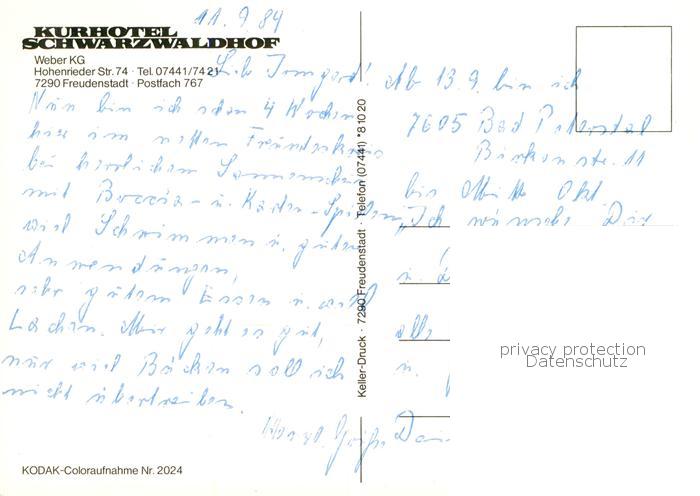 11.9.84
KURHOTEL
SCHWARZWALDHOF
Weber KG
Hohenrieder Str. 74 · Tel. 07441/7421
7290 Freudenstadt · Postfach 767
Lieb Irmgard!
Nun bin ich schon 4 Wochen
hier im netten Freundeskreis
bei herrlichem Sonnenschein
mit Boccia- u. Karten-Spielen,
viel Schwimmen u. guten
Anwendungen,
sehr gutem Essen u. viel
Lachen. Mir geht es gut,
nur viel Bücken soll ich
nicht übertreiben.
Grüße
KODAK-Coloraufnahme Nr. 2024
Keller-Druck · 7290 Freudenstadt · Telefon (07441) *81020
Ab 13.9. bin ich
7605 Bad Peterstal
Birkenstr. 11
bis Mitte Okt
Ich wünsche Dir
u.
alls
u.
privacy protection
Datenschutz